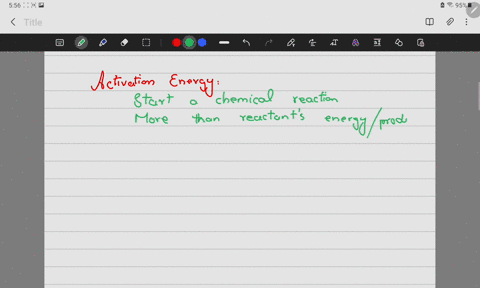 5:56
95%
Title
Activation Energy:
Start a chemical reaction
More than reactant's energy/prod